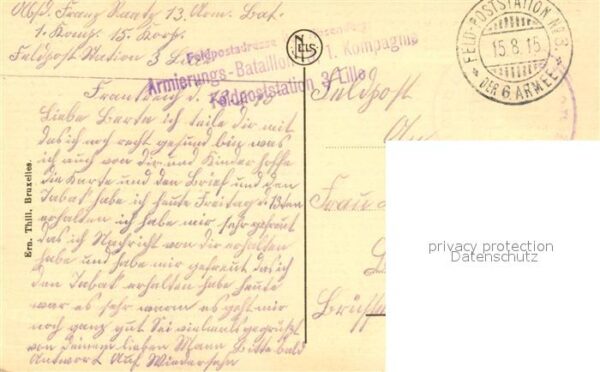 Absd. Franz Raatz 13. Arm. Bat.
1. Komp. 15. Korps.
Feldpost Station 3 Lille
Feldpostadresse
Armierungs-Bataillon 1. Kompagnie
Feldpoststation 3 Lille
NELS
FELD-POSTSTATION No 3.
15.8.15
DER 6 ARMEE
Frankreich d.
Liebe Berta ich teile dir mit
das ich noch recht gesund bin was
ich auch von dir und Kinder hoffe
die Karte und den Brief und den
Tabak habe ich heute Freitag d. 13ten
erhalten ich habe mir sehr gefreut
das ich Nachricht von dir erhalten
habe und habe mir gefreut das ich
den Tabak erhalten habe heute
war es sehr warm es geht mir
noch ganz gut Sei vielmals gegrüßt
von deinem lieben Mann Bitte bald
Antwort Auf Wiedersehn
Feldpost
An
Frau
Ern. Thill, Bruxelles.
privacy protection
Datenschutz